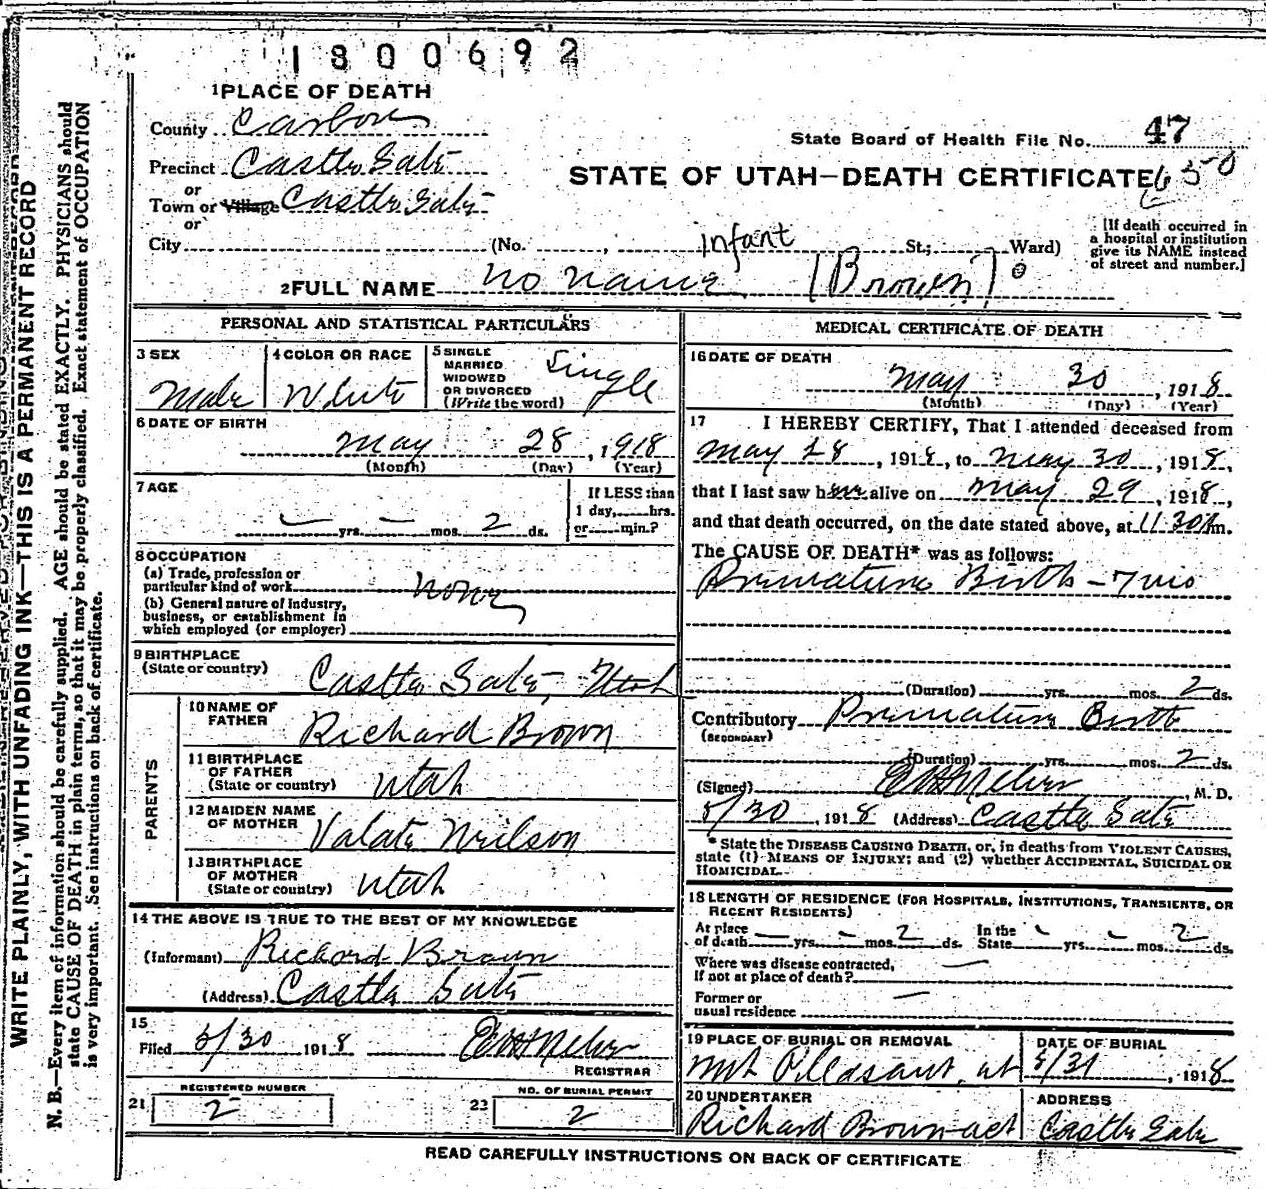 1800692
1 PLACE OF DEATH
County Carbon
State Board of Health File No. 47
Precinct Castle Gate
STATE OF UTAH—DEATH CERTIFICATE 650
or
Town or Village Castle Gate
or
City (No. , infant St.; Ward)
[If death occurred in a hospital or institution give its NAME instead of street and number.]
2 FULL NAME no name (Brown)
PERSONAL AND STATISTICAL PARTICULARS
3 SEX Male
4 COLOR OR RACE White
5 SINGLE MARRIED WIDOWED OR DIVORCED (Write the word) Single
6 DATE OF BIRTH
May 28, 1918
(Month) (Day) (Year)
7 AGE
— yrs. — mos. 2 ds.
If LESS than 1 day, hrs. or min.?
8 OCCUPATION
(a) Trade, profession or particular kind of work None
(b) General nature of industry, business, or establishment in which employed (or employer)
9 BIRTHPLACE
(State or country) Castle Gate, Utah
PARENTS
10 NAME OF FATHER Richard Brown
11 BIRTHPLACE OF FATHER (State or country) Utah
12 MAIDEN NAME OF MOTHER Valate Neilson
13 BIRTHPLACE OF MOTHER (State or country) Utah
14 THE ABOVE IS TRUE TO THE BEST OF MY KNOWLEDGE
(Informant) Richard Brown
(Address) Castle Gate
15
Filed 5/30 1918
REGISTRAR
REGISTERED NUMBER
21 2
NO. OF BURIAL PERMIT
22 2
MEDICAL CERTIFICATE OF DEATH
16 DATE OF DEATH
May 30, 1918
(Month) (Day) (Year)
17 I HEREBY CERTIFY, That I attended deceased from
May 28, 1918, to May 30, 1918,
that I last saw him alive on May 29, 1918,
and that death occurred, on the date stated above, at 11.30 A m.
The CAUSE OF DEATH* was as follows:
Premature Birth - 7 mo
(Duration) yrs. mos. 2 ds.
Contributory Premature Birth
(SECONDARY)
(Duration) yrs. mos. 2 ds.
(Signed) , M. D.
5/30, 1918 (Address) Castle Gate
* State the DISEASE CAUSING DEATH, or, in deaths from VIOLENT CAUSES,
state (1) MEANS OF INJURY; and (2) whether ACCIDENTAL, SUICIDAL OR
HOMICIDAL.
18 LENGTH OF RESIDENCE (FOR HOSPITALS, INSTITUTIONS, TRANSIENTS, OR
RECENT RESIDENTS)
At place of death — yrs. — mos. 2 ds. In the State — yrs. — mos. 2 ds.
Where was disease contracted,
if not at place of death? —
Former or
usual residence —
19 PLACE OF BURIAL OR REMOVAL
Mt Pleasant, ut
DATE OF BURIAL
5/31, 1918
20 UNDERTAKER
Richard Brown act
ADDRESS
Castle Gate
READ CAREFULLY INSTRUCTIONS ON BACK OF CERTIFICATE
WRITE PLAINLY, WITH UNFADING INK—THIS IS A PERMANENT RECORD
N. B.—Every item of information should be carefully supplied. AGE should be stated EXACTLY. PHYSICIANS should
state CAUSE OF DEATH in plain terms, so that it may be properly classified. Exact statement of OCCUPATION
is very important. See instructions on back of certificate.